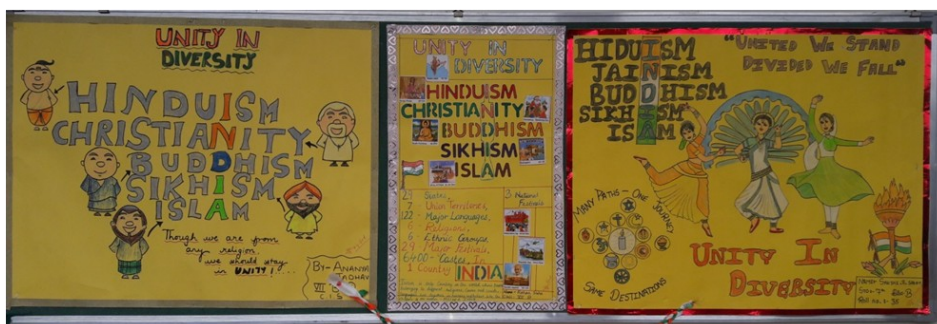 UNITY IN
DIVERSITY
HINDUISM
CHRISTIANITY
BUDDHISM
SIKHISM
ISLAM
Though we are from
any religion,
we should stay
in UNITY!...
BY- ANANYA
JADHAV
VII
UNITY IN
DIVERSITY
HINDUISM
CHRISTIANITY
BUDDHISM
SIKHISM
ISLAM
29 States,
7 - Union Territories,
122 - Major Languages,
6 Religions,
6 Ethnic Groups
29 Major festivals,
6400 - Castes, In
1 Country INDIA
3 National
Festivals
HIDUISM
JAINISM
BUDDHISM
SIKHISM
ISAM
"UNITED WE STAND
DIVIDED WE FALL"
MANY PATHS - ONE JOURNEY
SAME DESTINATIONS
UNITY IN
DIVERSITY